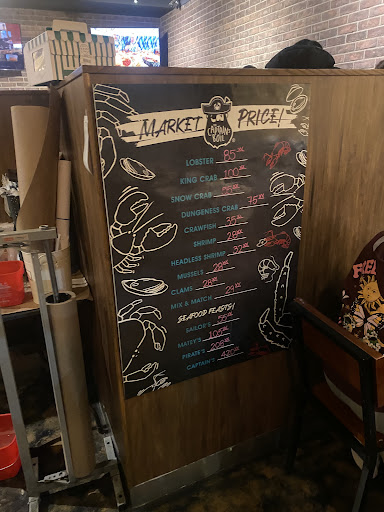 MARKET PRICE!
CAPTAIN'S
BOIL
LOBSTER 85.00
KING CRAB 100.00
SNOW CRAB
DUNGENESS CRAB 75.00
CRAWFISH 35.00
SHRIMP 28.00
HEADLESS SHRIMP 32.00
MUSSELS 28.00
CLAMS 28.00
MIX & MATCH 29.00
SEAFOOD FEASTS!
SAILOR'S 55.00
MATEY'S 105.00
PIRATE'S 208.00
CAPTAIN'S 420.00